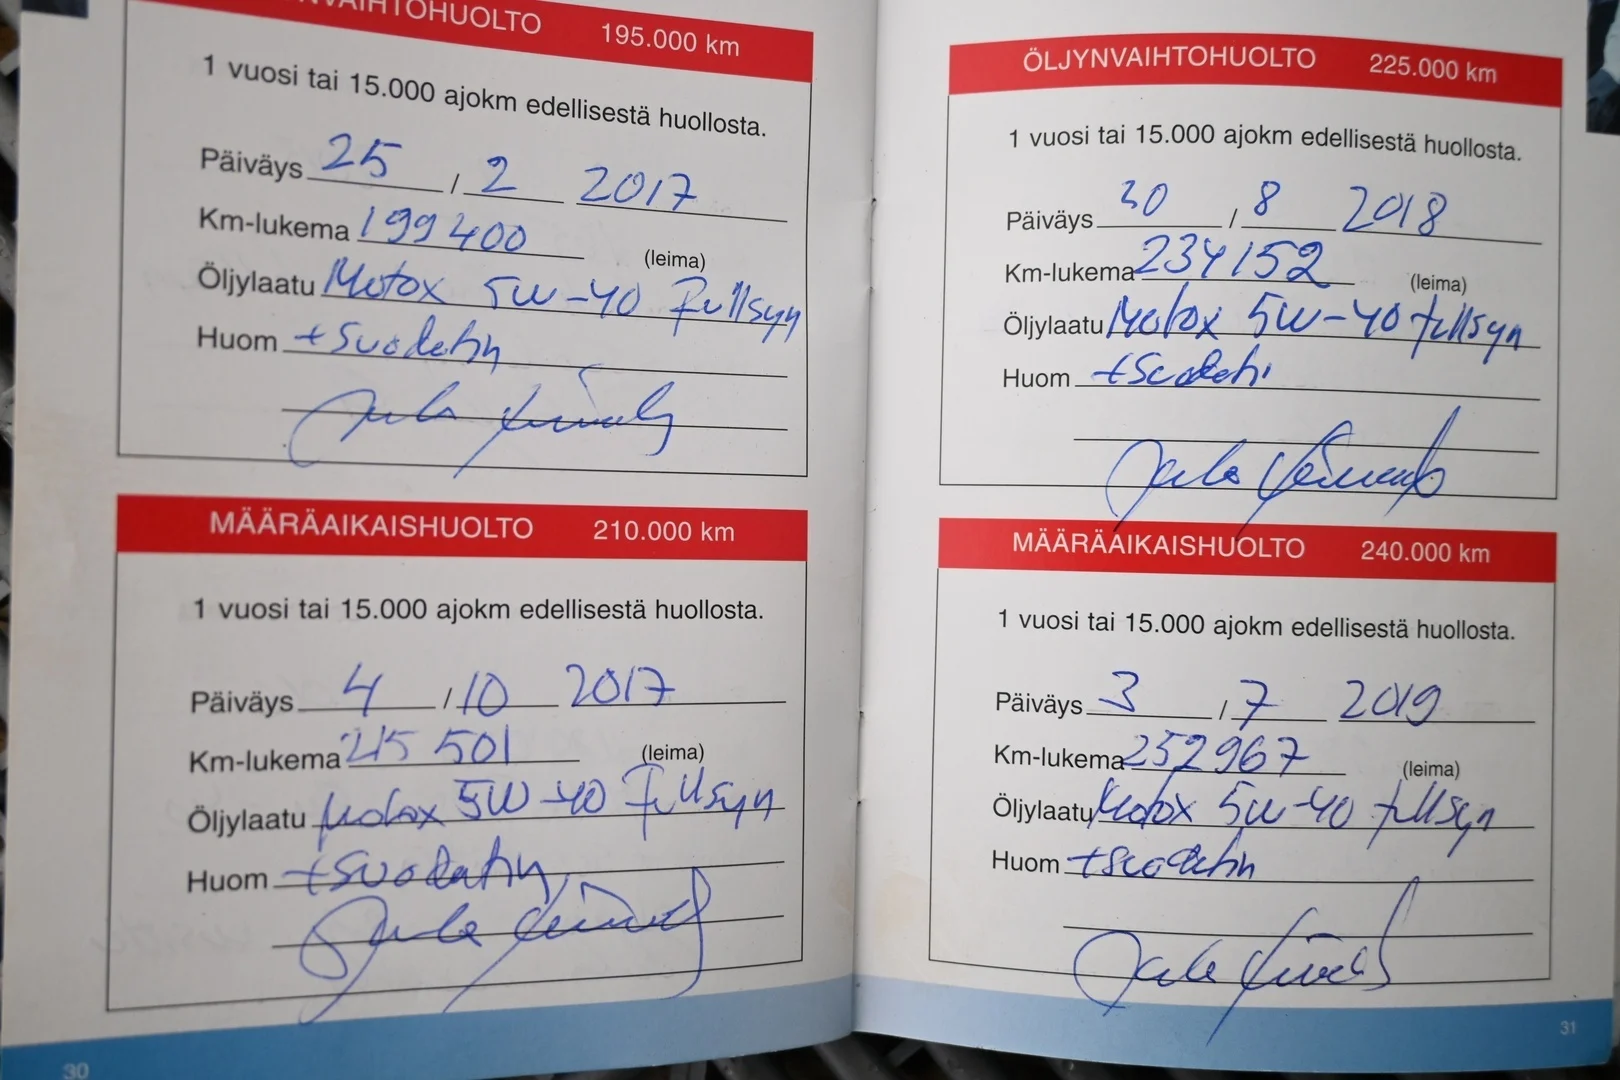 NVAIHTOHUOLTO 195.000 km
1 vuosi tai 15.000 ajokm edellisestä huollosta.
Päiväys 25 / 2 2017
Km-lukema 199400 (leima)
Öljylaatu Motox 5W-40 Fullsyn
Huom + suodatin
MÄÄRÄAIKAISHUOLTO 210.000 km
1 vuosi tai 15.000 ajokm edellisestä huollosta.
Päiväys 4 / 10 2017
Km-lukema 215 501 (leima)
Öljylaatu Motox 5W-40 Fullsyn
Huom + suodatin
30
ÖLJYNVAIHTOHUOLTO 225.000 km
1 vuosi tai 15.000 ajokm edellisestä huollosta.
Päiväys / 8 2018
Km-lukema 234152 (leima)
Öljylaatu Motox 5W-40 fullsyn
Huom + suodatin
MÄÄRÄAIKAISHUOLTO 240.000 km
1 vuosi tai 15.000 ajokm edellisestä huollosta.
Päiväys 3 / 7 2019
Km-lukema 252967 (leima)
Öljylaatu Motox 5W-40 fullsyn
Huom + suodatin
31